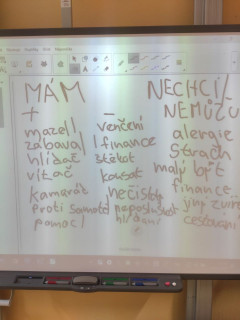 MÁM
+
mazel
zábava
hlídač
vítač
kamarád
proti samotě
pomoc
-
venčení
finance
štěkot
kousat
nečistota
neposlušnost
hlídání
NECHCI/
NEMŮŽU
alergie
strach
malý byt
finance
jiný zvíře
cestování